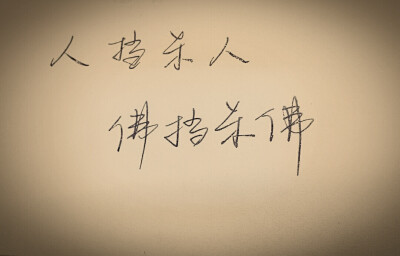 人挡杀人
佛挡杀佛